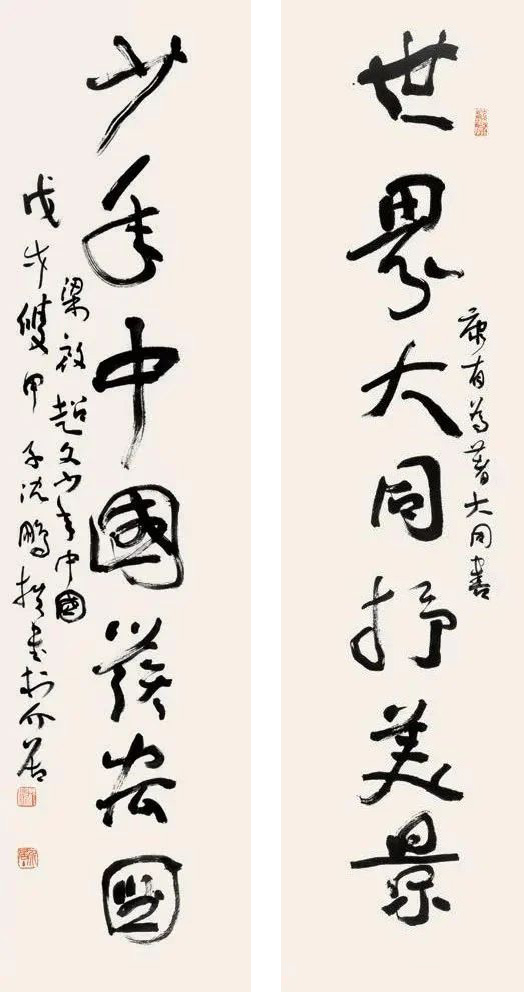 康有為著大同書
世界大同抒美景
少年中國發宏圖
梁啟超文少年中國
戊戌雙甲子沈鵬撰書於介居